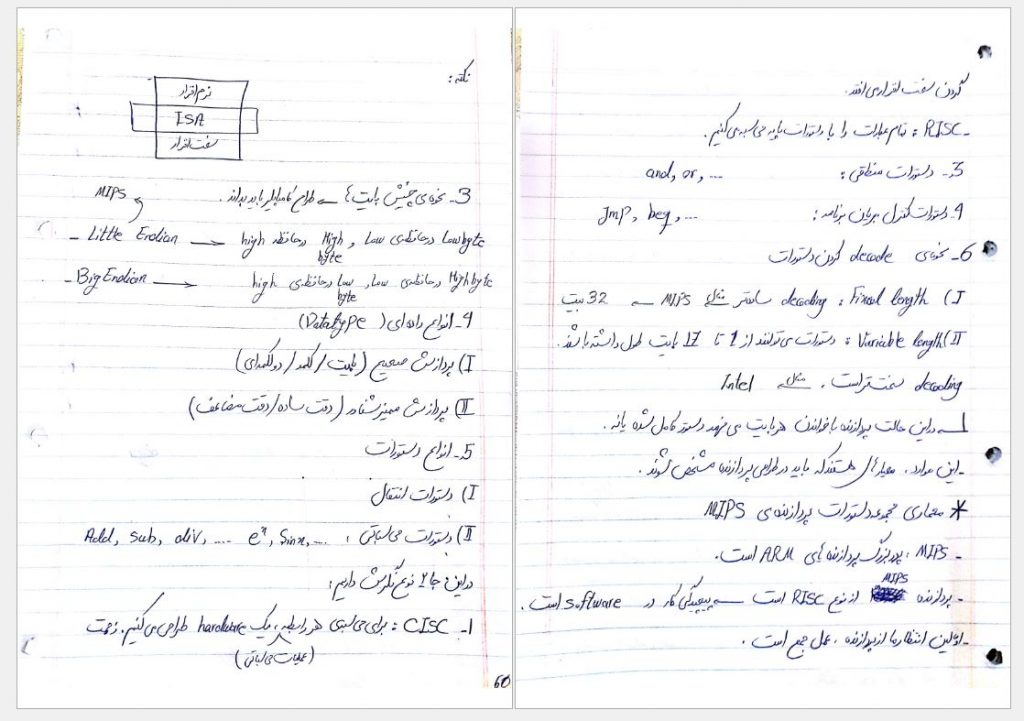 نکته:
نرم افزار
ISA
سخت افزار
3- نحوه‌ی چینش بایت ها → طراح کامپایلر باید بداند.
MIPS
- Little Endian → high در حافظه High byte و low در حافظه‌ی Low byte
- Big Endian → high در حافظه‌ی Low byte و low در حافظه‌ی High byte
4- انواع داده‌ای (Datatype)
I) پردازش صحیح (بایت / کلمه / دو کلمه‌ای)
II) پردازش ممیز شناور (دقت ساده / دقت مضاعف)
5- انواع دستورات
I) دستورات انتقال
II) دستورات محاسباتی: Add, sub, div, .... eˣ, Sinx, ....
در این جا 2 نوع نگرش داریم:
1- CISC: برای محاسبه‌ی هر رابطه، یک hardware طراحی می کنیم. زحمت
(عملیات محاسباتی)
60
کردن سخت افزاری افتد.
- RISC: تمام عبارات را با دستورات پایه محاسبه می کنیم.
3- دستورات منطقی: and, or, ...
4- دستورات کنترل جریان برنامه: Jmp, beq, ...
6- نحوه‌ی decode کردن دستورات
I) Fixed length: decoding ساده‌تر مثل MIPS → 32 بیت
II) Variable length: دستورات می توانند از 1 تا 17 بایت طول داشته باشند.
decoding سخت‌تر است. مثل Intel
→ در این حالت پردازنده با خواندن هر بایت می فهمد دستور کامل شده یا نه.
- این موارد، معیارهایی هستند که باید در طراحی پردازنده مشخص شوند.
* معماری مجموعه دستورات پردازنده‌ی MIPS
- MIPS: پدربزرگ پردازنده های ARM است.
- پردازنده MIPS از نوع RISC است → پیچیدگی کار در software است.
- اولین انتظار ما از پردازنده، عمل جمع است.